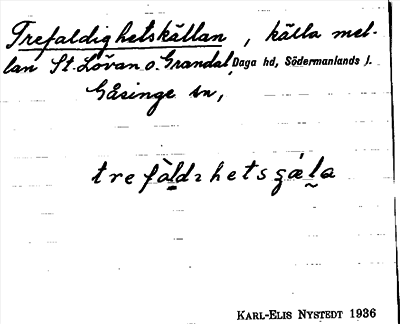 Trefaldighetskällan, källa mel-
lan St. Lövan o. Grandal, Daga hd, Södermanlands l.
Gåsinge sn,
trefàldɩhetsʂála
KARL-ELIS NYSTEDT 1936